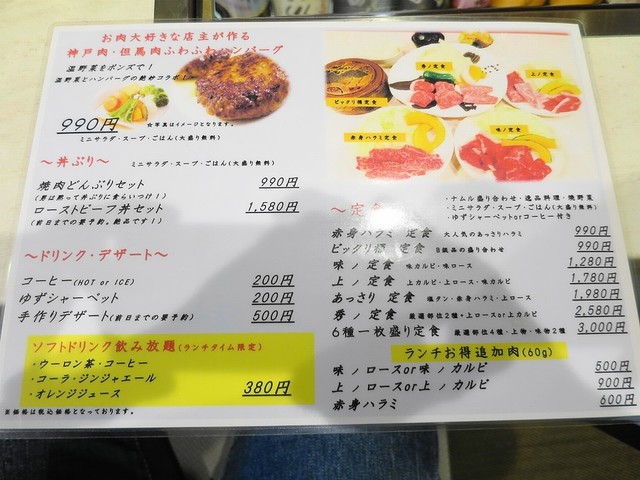 お肉大好きな店主が作る
神戸肉・但馬肉ふわふわハンバーグ
温野菜をポンズで!
温野菜とハンバーグの絶妙コラボ!
990円
☆写真はイメージとなります。
ミニサラダ・スープ・ごはん(大盛り無料)
〜丼ぶり〜 ミニサラダ・スープ・ごはん(大盛り無料)
焼肉どんぶりセット 990円
(男は黙って丼ぶりに食らいつけ!)
ローストビーフ丼セット 1,580円
(前日までの要予約。絶品です!)
〜ドリンク・デザート〜
コーヒー(HOT or ICE) 200円
ゆずシャーベット 200円
手作りデザート(前日までの要予約) 500円
ソフトドリンク飲み放題(ランチタイム限定)
・ウーロン茶・コーヒー
・コーラ・ジンジャエール
・オレンジジュース 380円
※価格は税込価格となっております。
ビックリ桶定食
秀ノ定食
上ノ定食
赤身ハラミ定食
味ノ定食
〜定食
・ナムル盛り合わせ・逸品料理・焼野菜
・ミニサラダ・スープ・ごはん(大盛り無料)
・ゆずシャーベットorコーヒー付き
赤身ハラミ 定食 大人気のあっさりハラミ 990円
ビックリ桶 定食 B級品の盛り合わせ 990円
味 ノ 定食 味カルビ・味ロース 1,280円
上 ノ 定食 上カルビ・上ロース・味カルビ 1,780円
あっさり 定食 塩タン・赤身ハラミ・上ロース 1,980円
秀 ノ 定食 厳選部位2種・上ロースor上カルビ 2,580円
6種一枚盛り定食 厳選部位4種・上物・味物2種 3,000円
ランチお得追加肉(60g)
味 ノ ロースor味 ノ カルビ 500円
上 ノ ロースor上 ノ カルビ 900円
赤身ハラミ 600円